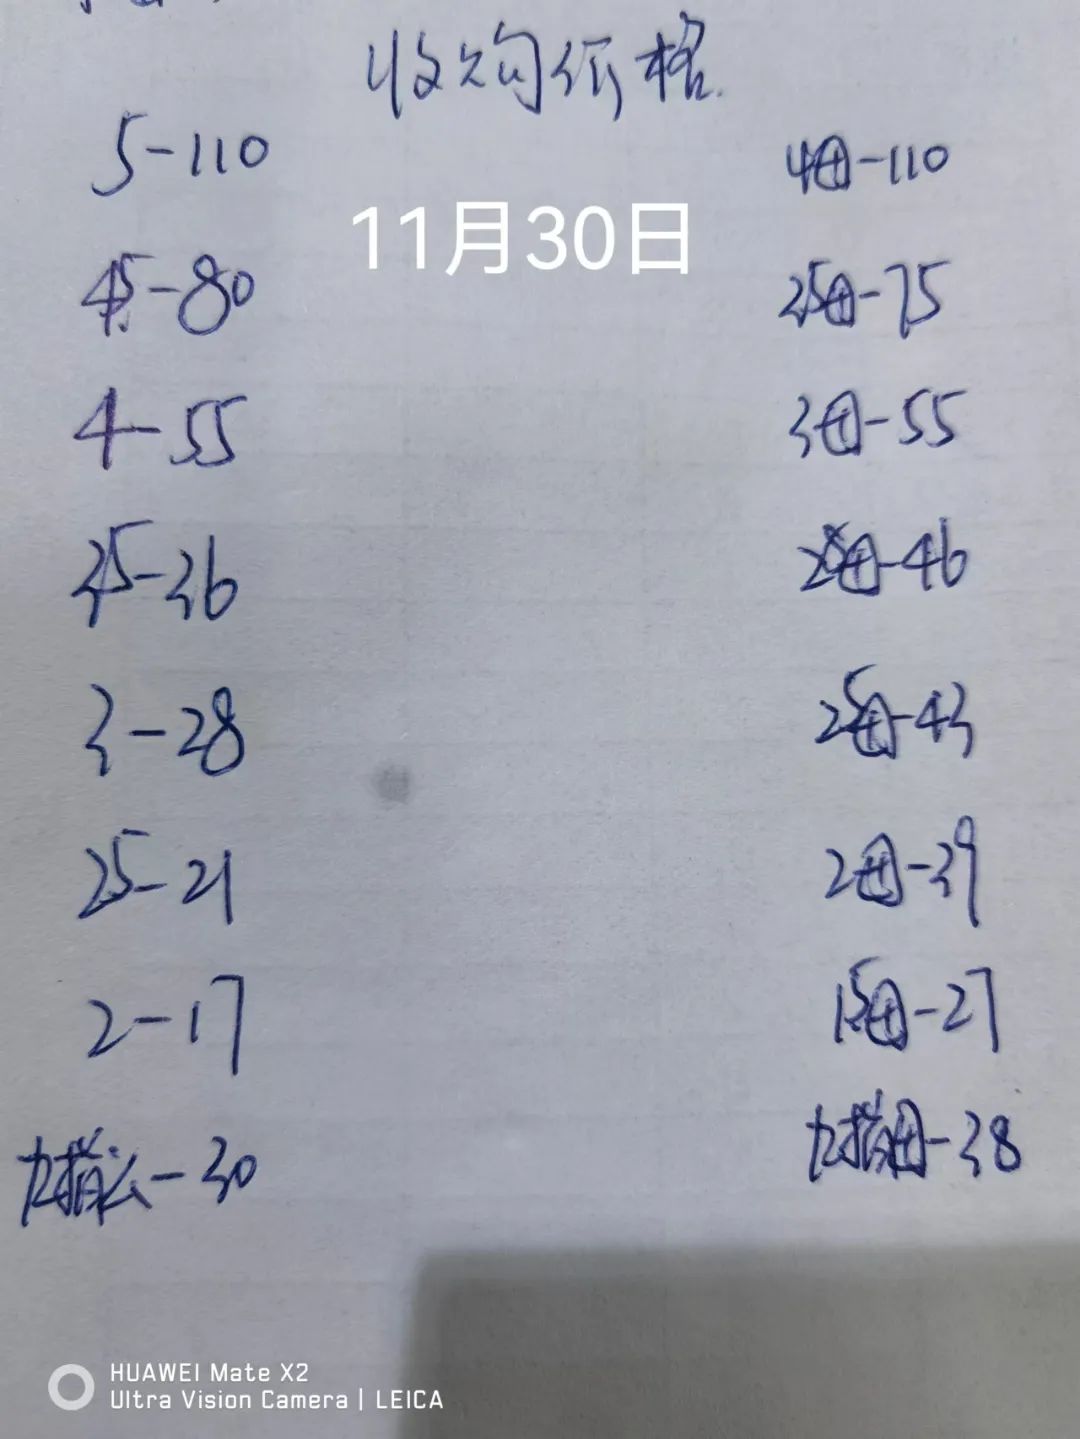 收购价格
5-110
4母-110
11月30日
45-80
25母-75
4-55
3母-55
35-36
28母-46
3-28
25母-43
25-21
2母-39
2-17
15母-27
公-30
母-38
HUAWEI Mate X2
Ultra Vision Camera | LEICA